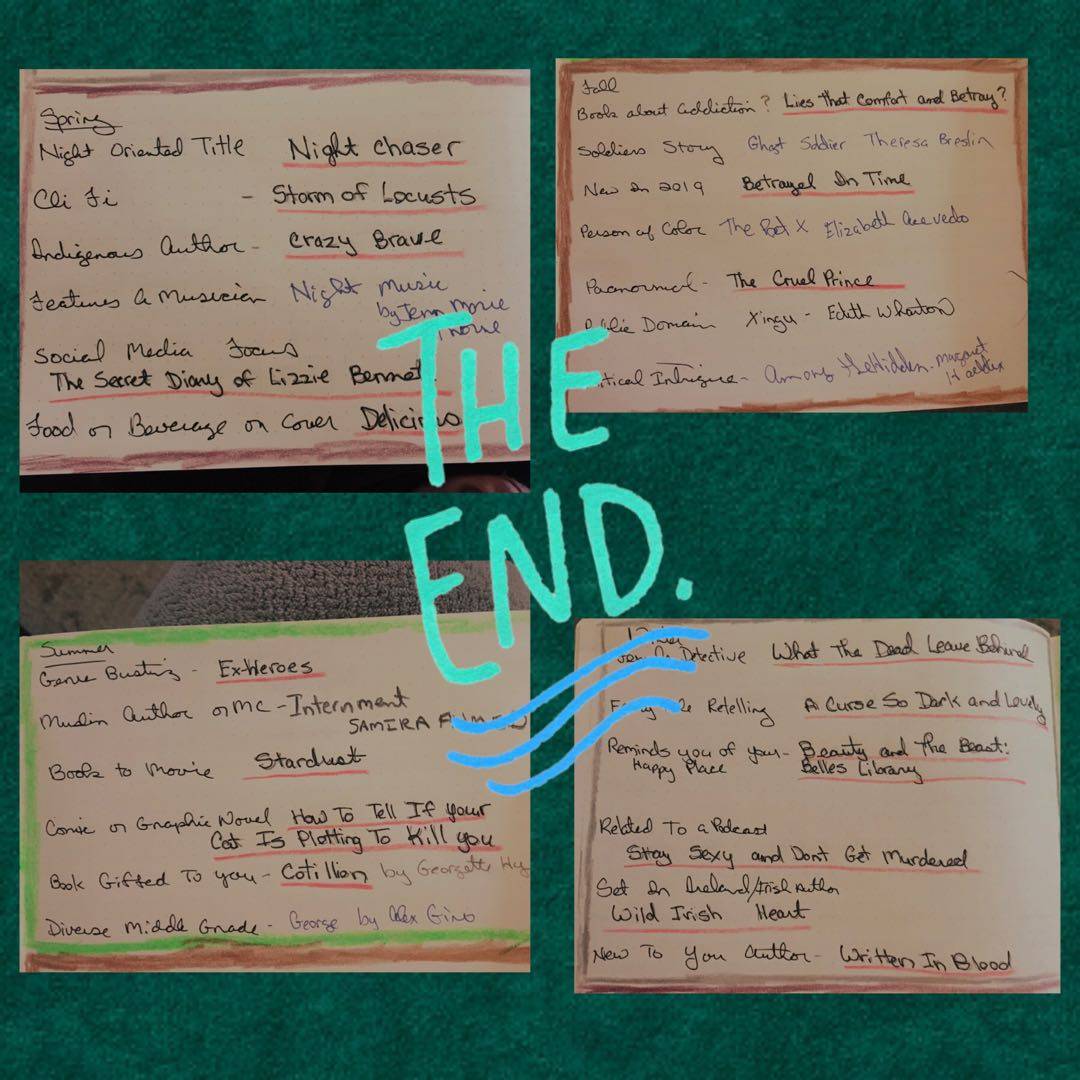 Spring
Night Oriented Title Night Chaser
Cli Fi - Storm of Locusts
Indigenous Author - Crazy Brave
Features A Musician Night Music
by Jenn Marie
Thorne
Social Media Focus
The Secret Diary of Lizzie Bennet
Food or Beverage on Cover Delicious
Fall
Book about addiction? Lies That Comfort and Betray?
Soldiers Story Ghost Soldier Theresa Breslin
New In 2019 Betrayal In Time
Person of Color The Poet X Elizabeth Acevedo
Paranormal - The Cruel Prince
Public Domain Xingu - Edith Wharton
Political Intrigue - Among The Hidden - Margaret
THE
END.
Summer
Genre Busting - Ex-Heroes
Muslim Author or MC - Internment
SAMIRA AHMED
Book to Movie Stardust
Comic or Graphic Novel How To Tell If your
Cat Is Plotting To Kill you
Book Gifted To you - Cotillion by Georgette Hey
Diverse Middle Grade - George by Alex Gino
Detective What The Dead Leave Behind
Retelling A Curse So Dark and Lonely
Reminds you of your - Beauty and The Beast:
Happy Place Belles Library
Related To a Podcast
Stay Sexy and Dont Get Murdered
Set In Ireland/Irish Author
Wild Irish Heart
New To You Author - Written In Blood